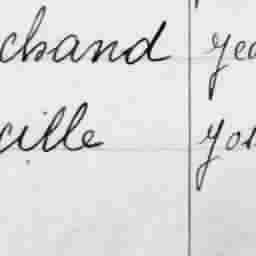 chand yea
cille you